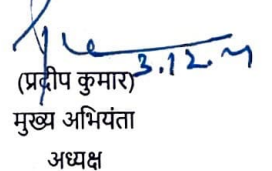 3.12.
(प्रदीप कुमार)
मुख्य अभियंता
अध्यक्ष